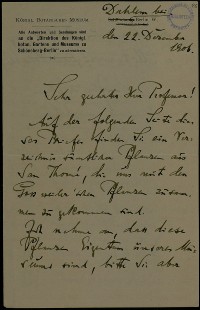 KÖNIGL. BOTANISCHES MUSEUM
Alle Antworten und Sendungen sind
an die „Direktion des Königl.
botan. Gartens und Museums zu
Dahlem bei
den 22. Dezember
1906.
Sehr geehrter Herr Professor!
Auf der folgenden Seite die
ses Briefes finden Sie ein Ver
zeichnis sämtlicher Pflanzen aus
San Thomé, die uns mit den
Pflanzen zusam
men zugekommen sind.
Ich nehme an, dass diese
Pflanzen Eigentum unseres Mu
seums sind, bitte Sie aber